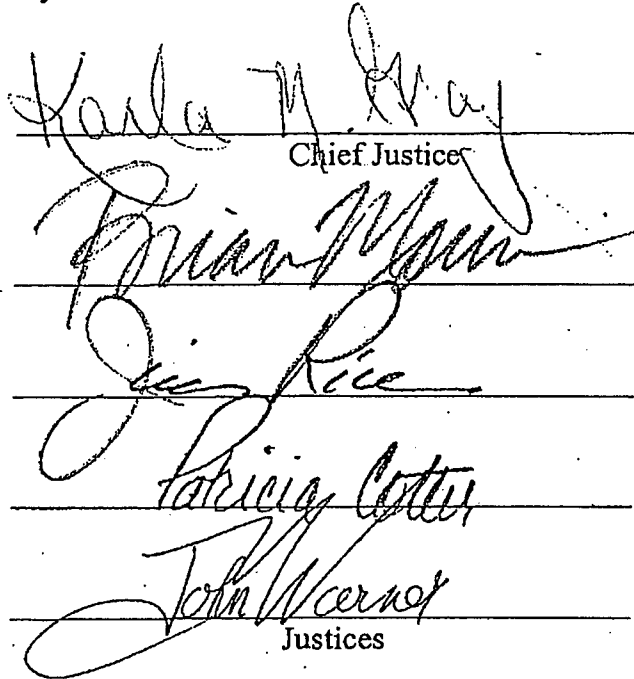 Karla M. Gray
Chief Justice
Brian Morris
Jim Rice
Patricia Cotter
John Warner
Justices